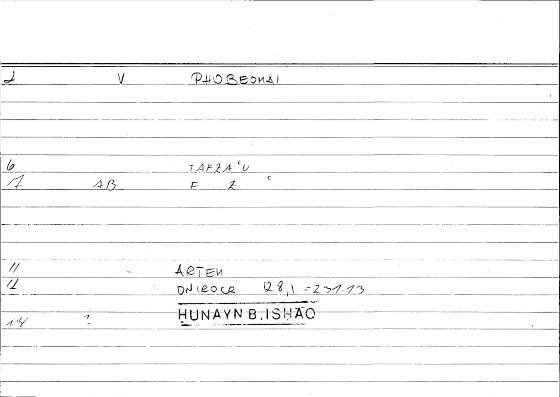 2 V PHOBEOMAI
6 TAFZA‘U
7 AB F Z ‘
11 ARTEM
12 ONIROCR 128,1 = 231.13
HUNAYN B. ISHAQ
14 ?